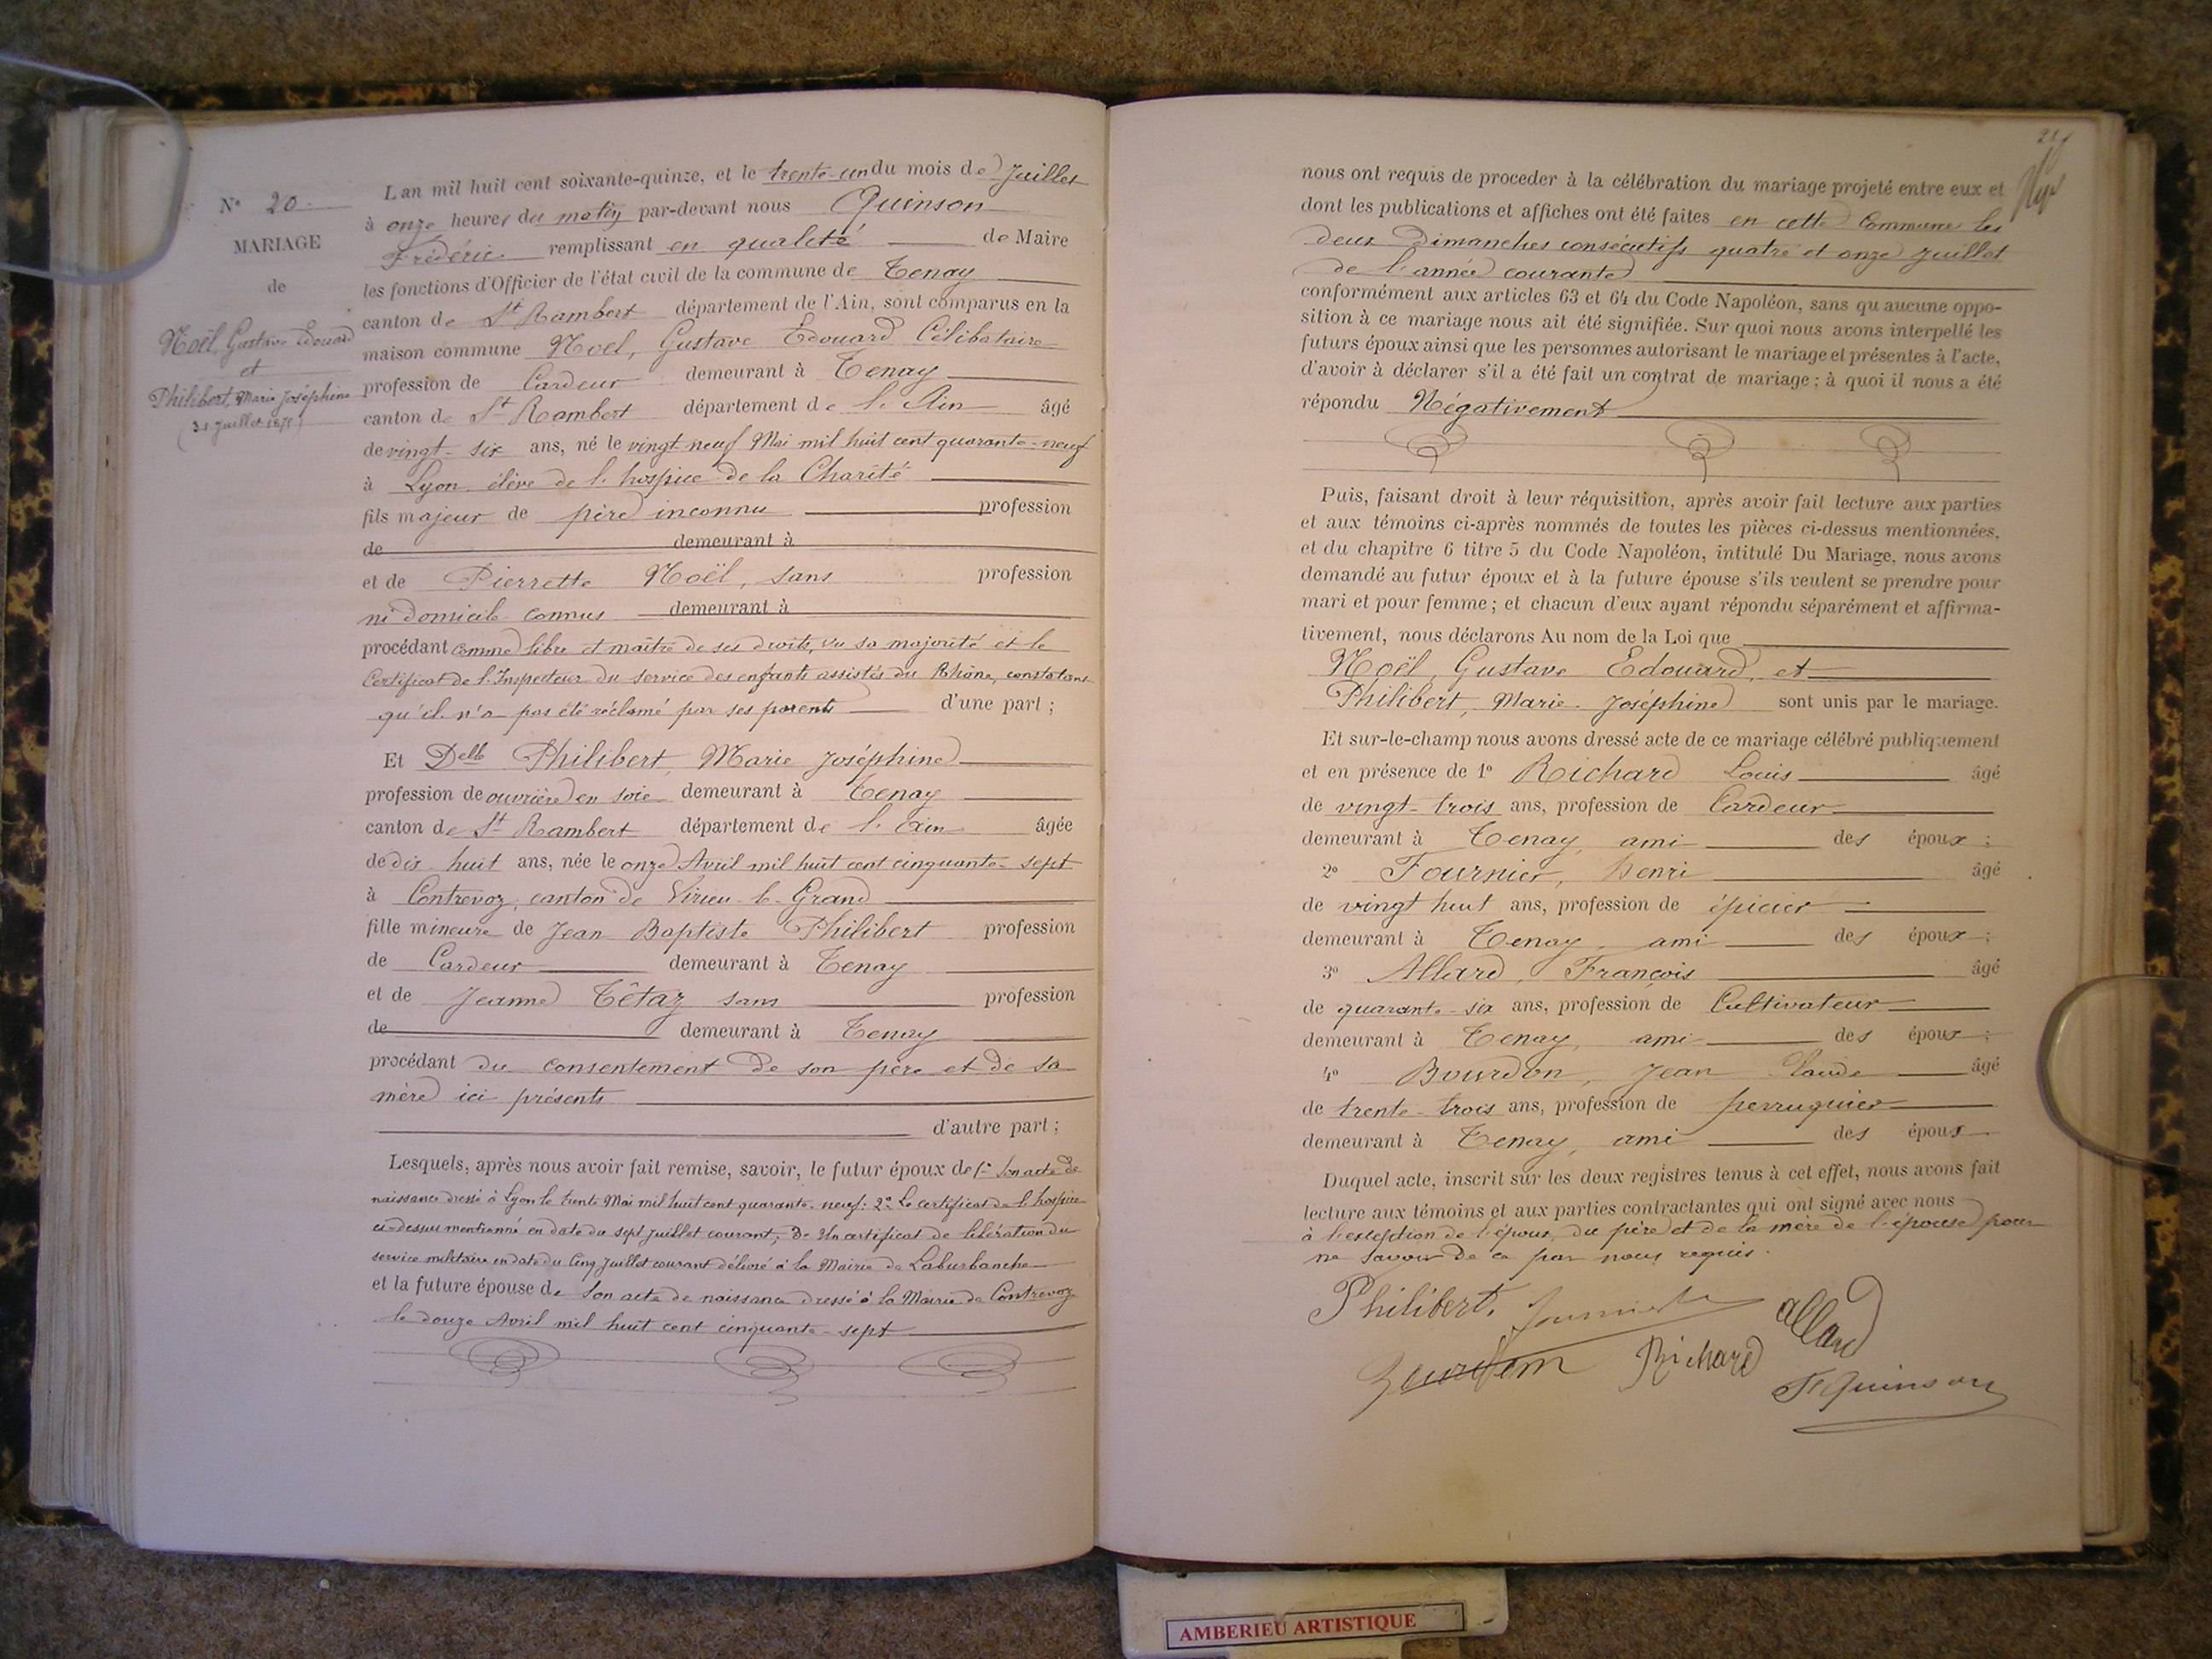 N° 20
MARIAGE
de
Noël, Gustave Edouard
et
Philibert, Marie Joséphine
(31 Juillet 1875)
L'an mil huit cent soixante-quinze, et le trente-un du mois de Juillet
à onze heures du matin par-devant nous Quinson
Frédéric remplissant en qualité de Maire
les fonctions d'Officier de l'état civil de la commune de Tenay
canton de St Rambert département de l'Ain, sont comparus en la
maison commune Noel, Gustave Edouard Célibataire
profession de Cardeur demeurant à Tenay
canton de St Rambert département de l'Ain âgé
de vingt-six ans, né le vingt-neuf Mai mil huit cent quarante-neuf
à Lyon élève de l'hospice de la Charité
fils majeur de père inconnu profession
de demeurant à
et de Pierrette Noël, sans profession
ni domicile connus demeurant à
procédant comme libre et maître de ses droits, vu sa majorité et le
Certificat de l'Inspecteur du service des enfants assistés du Rhône, constatant
qu'il n'a pas été réclamé par ses parents d'une part ;
Et Delle Philibert, Marie Joséphine
profession de ouvrière en soie demeurant à Tenay
canton de St Rambert département de l'Ain âgée
de dix-huit ans, née le onze Avril mil huit cent cinquante-sept
à Contrevoz, canton de Virieu-le-Grand
fille mineure de Jean Baptiste Philibert profession
de Cardeur demeurant à Tenay
et de Jeanne Têtaz sans profession
de demeurant à Tenay
procédant du consentement de son père et de sa
mère ici présents
d'autre part ;
Lesquels, après nous avoir fait remise, savoir, le futur époux de 1° Son acte de
naissance dressé à Lyon le trente Mai mil huit cent quarante-neuf: 2° Le certificat de l'hospice
ci-dessus mentionné en date du sept Juillet courant; 3° Un certificat de libération du
service militaire en date du Cinq Juillet courant délivré à la Mairie de Laburbanche
et la future épouse de Son acte de naissance dressé à la Mairie de Contrevoz
le douze Avril mil huit cent cinquante-sept
nous ont requis de proceder à la célébration du mariage projeté entre eux et
dont les publications et affiches ont été faites en cette Commune les
deux Dimanches consécutifs quatre et onze Juillet
de l'année courante
conformément aux articles 63 et 64 du Code Napoléon, sans qu'aucune oppo-
sition à ce mariage nous ait été signifiée. Sur quoi nous avons interpellé les
futurs époux ainsi que les personnes autorisant le mariage et présentes à l'acte,
d'avoir à déclarer s'il a été fait un contrat de mariage ; à quoi il nous a été
répondu Négativement
Puis, faisant droit à leur réquisition, après avoir fait lecture aux parties
et aux témoins ci-après nommés de toutes les pièces ci-dessus mentionnées,
et du chapitre 6 titre 5 du Code Napoléon, intitulé Du Mariage, nous avons
demandé au futur époux et à la future épouse s'ils veulent se prendre pour
mari et pour femme ; et chacun d'eux ayant répondu séparément et affirma-
tivement, nous déclarons Au nom de la Loi que
Noël, Gustave Edouard, et
Philibert, Marie Joséphine sont unis par le mariage.
Et sur-le-champ nous avons dressé acte de ce mariage célébré publiquement
et en présence de 1° Richard Louis âgé
de vingt-trois ans, profession de Cardeur
demeurant à Tenay, ami des époux ;
2° Fournier, Henri âgé
de vingt huit ans, profession de épicier
demeurant à Tenay, ami des époux ;
3° Allard, François âgé
de quarante-six ans, profession de Cultivateur
demeurant à Tenay, ami des époux ;
4° Bourdon, Jean Claude âgé
de trente-trois ans, profession de perruquier
demeurant à Tenay, ami des époux
Duquel acte, inscrit sur les deux registres tenus à cet effet, nous avons fait
lecture aux témoins et aux parties contractantes qui ont signé avec nous
à l'exception de l'époux, du père et de la mère de l'épouse pour
ne savoir de ce par nous requis.
Philibert, allard
Bourdon Richard
F Quinson
AMBERIEU ARTISTIQUE